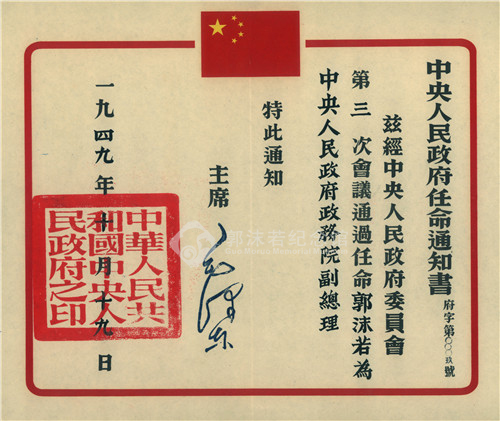 中央人民政府任命通知書
府字第〇〇〇玖號
茲經中央人民政府委員會
第三次會議通過任命郭沫若為
中央人民政府政務院副總理
特此通知
主席 毛澤东
一九四九年十月十九日
中華人民共
和國中央人
民政府之印
郭沫若纪念馆